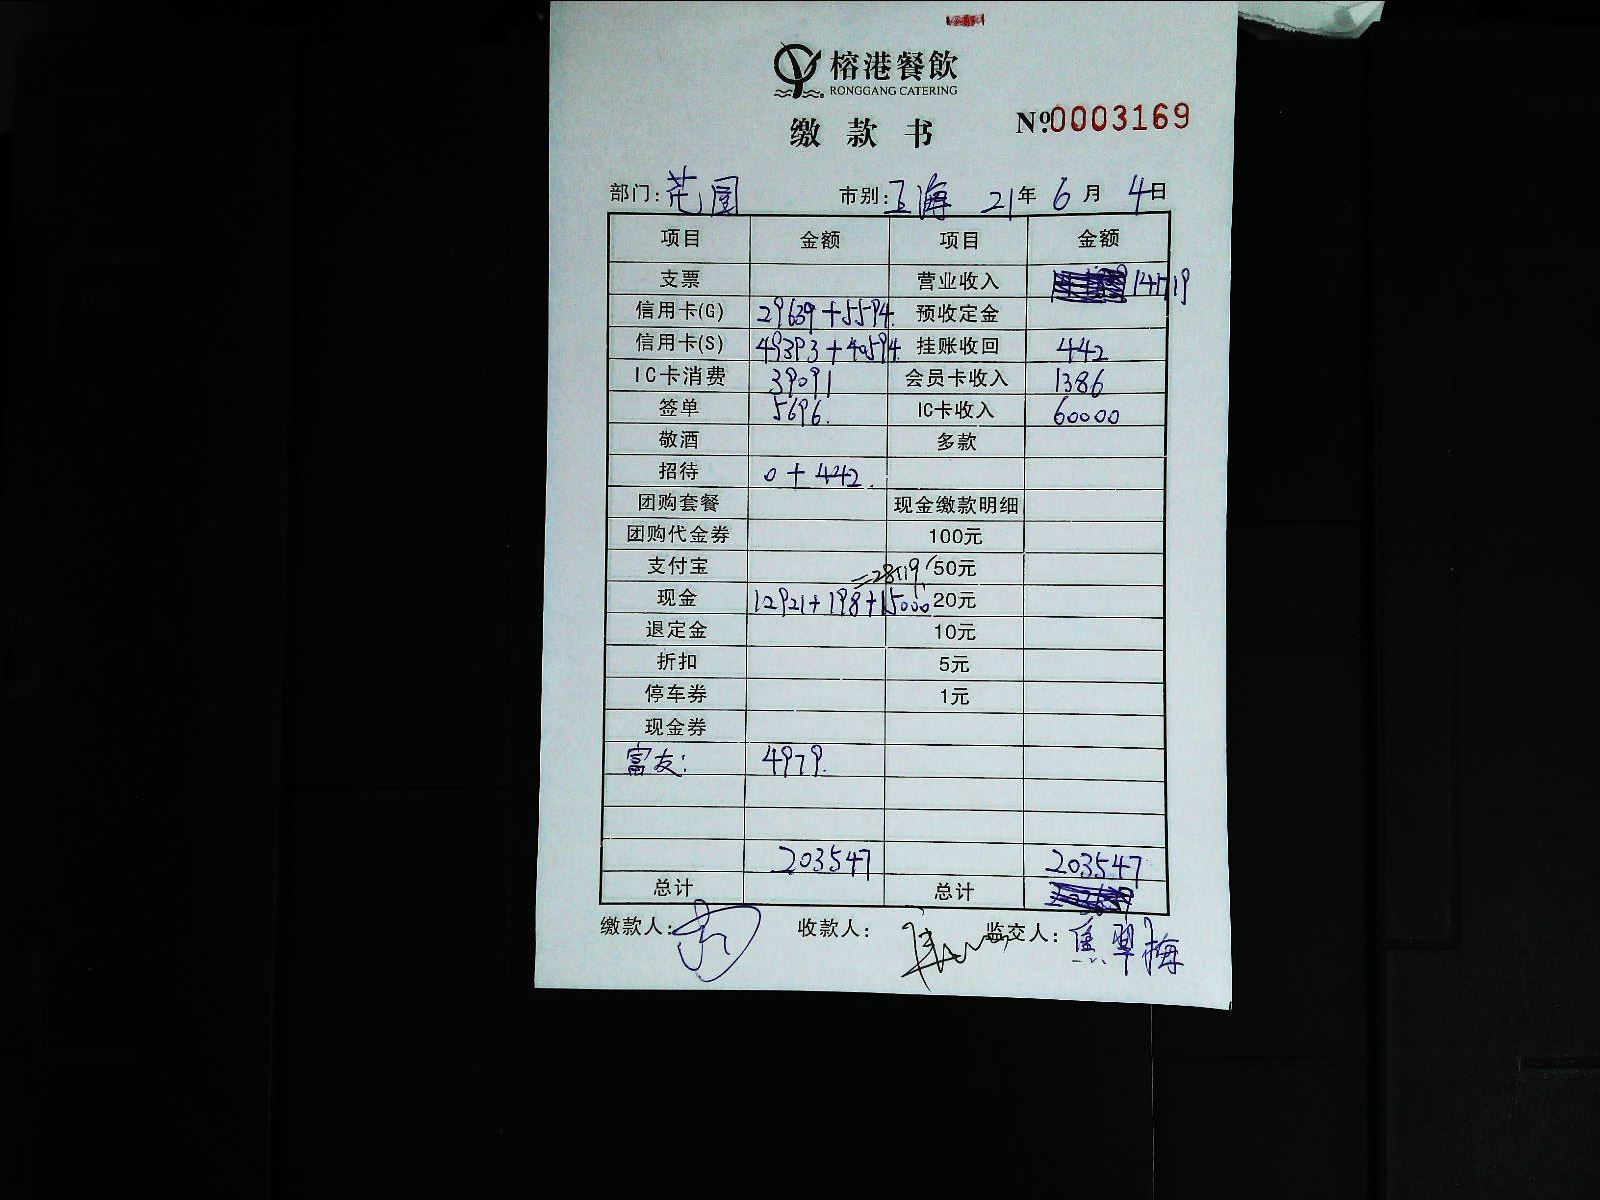 榕港餐飲
RONGGANG CATERING
缴款书
No.0003169
部门: 花园 市别: 上海 21年 6月 4日
项目 金额 项目 金额
支票 营业收入 141719
信用卡(G) 29639+5594. 预收定金
信用卡(S) 49393+40594. 挂账收回 442
IC卡消费 39091 会员卡收入 1386
签单 5696. IC卡收入 60000
敬酒 多款
招待 0+442.
团购套餐 现金缴款明细
团购代金券 100元
支付宝 =28119. 50元
现金 12921+198+15000 20元
退定金 10元
折扣 5元
停车券 1元
现金券
富友: 4979.
203547 203547
总计 总计
缴款人: 收款人: 监交人: 焦翠梅